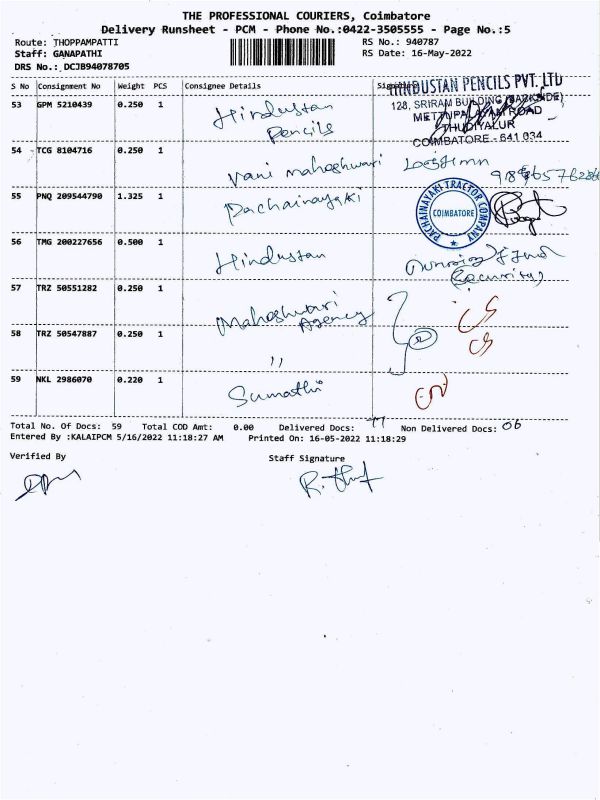 THE PROFESSIONAL COURIERS, Coimbatore
Delivery Runsheet - PCM - Phone No.:0422-3505555 - Page No.:5
Route: THOPPAMPATTI RS No.: 940787
Staff: GANAPATHI RS Date: 16-May-2022
DRS No.: DCJB94078705
S No Consignment No Weight PCS Consignee Details
53 GPM 5210439 0.250 1 Hindustan
Pencils
HINDUSTAN PENCILS PVT. LTD
128, SRIRAM BUILDING (BACKSIDE)
METTUPALAYAM ROAD
THUDIYALUR
COIMBATORE - 641 034
54 TCG 8104716 0.250 1 Vani maheshwari
55 PNQ 209544790 1.325 1 Pachainayaki
PACHAINAYAKI TRACTOR COMPANY
COIMBATORE
56 TMG 200227656 0.500 1 Hindustan
(Security)
57 TRZ 50551282 0.250 1 Maheshwari
Agency
58 TRZ 50547887 0.250 1 ,,
59 NKL 2986070 0.220 1 Sumathi
Total No. Of Docs: 59 Total COD Amt: 0.00 Delivered Docs: Non Delivered Docs: 06
Entered By :KALAIPCM 5/16/2022 11:18:27 AM Printed On: 16-05-2022 11:18:29
Verified By Staff Signature